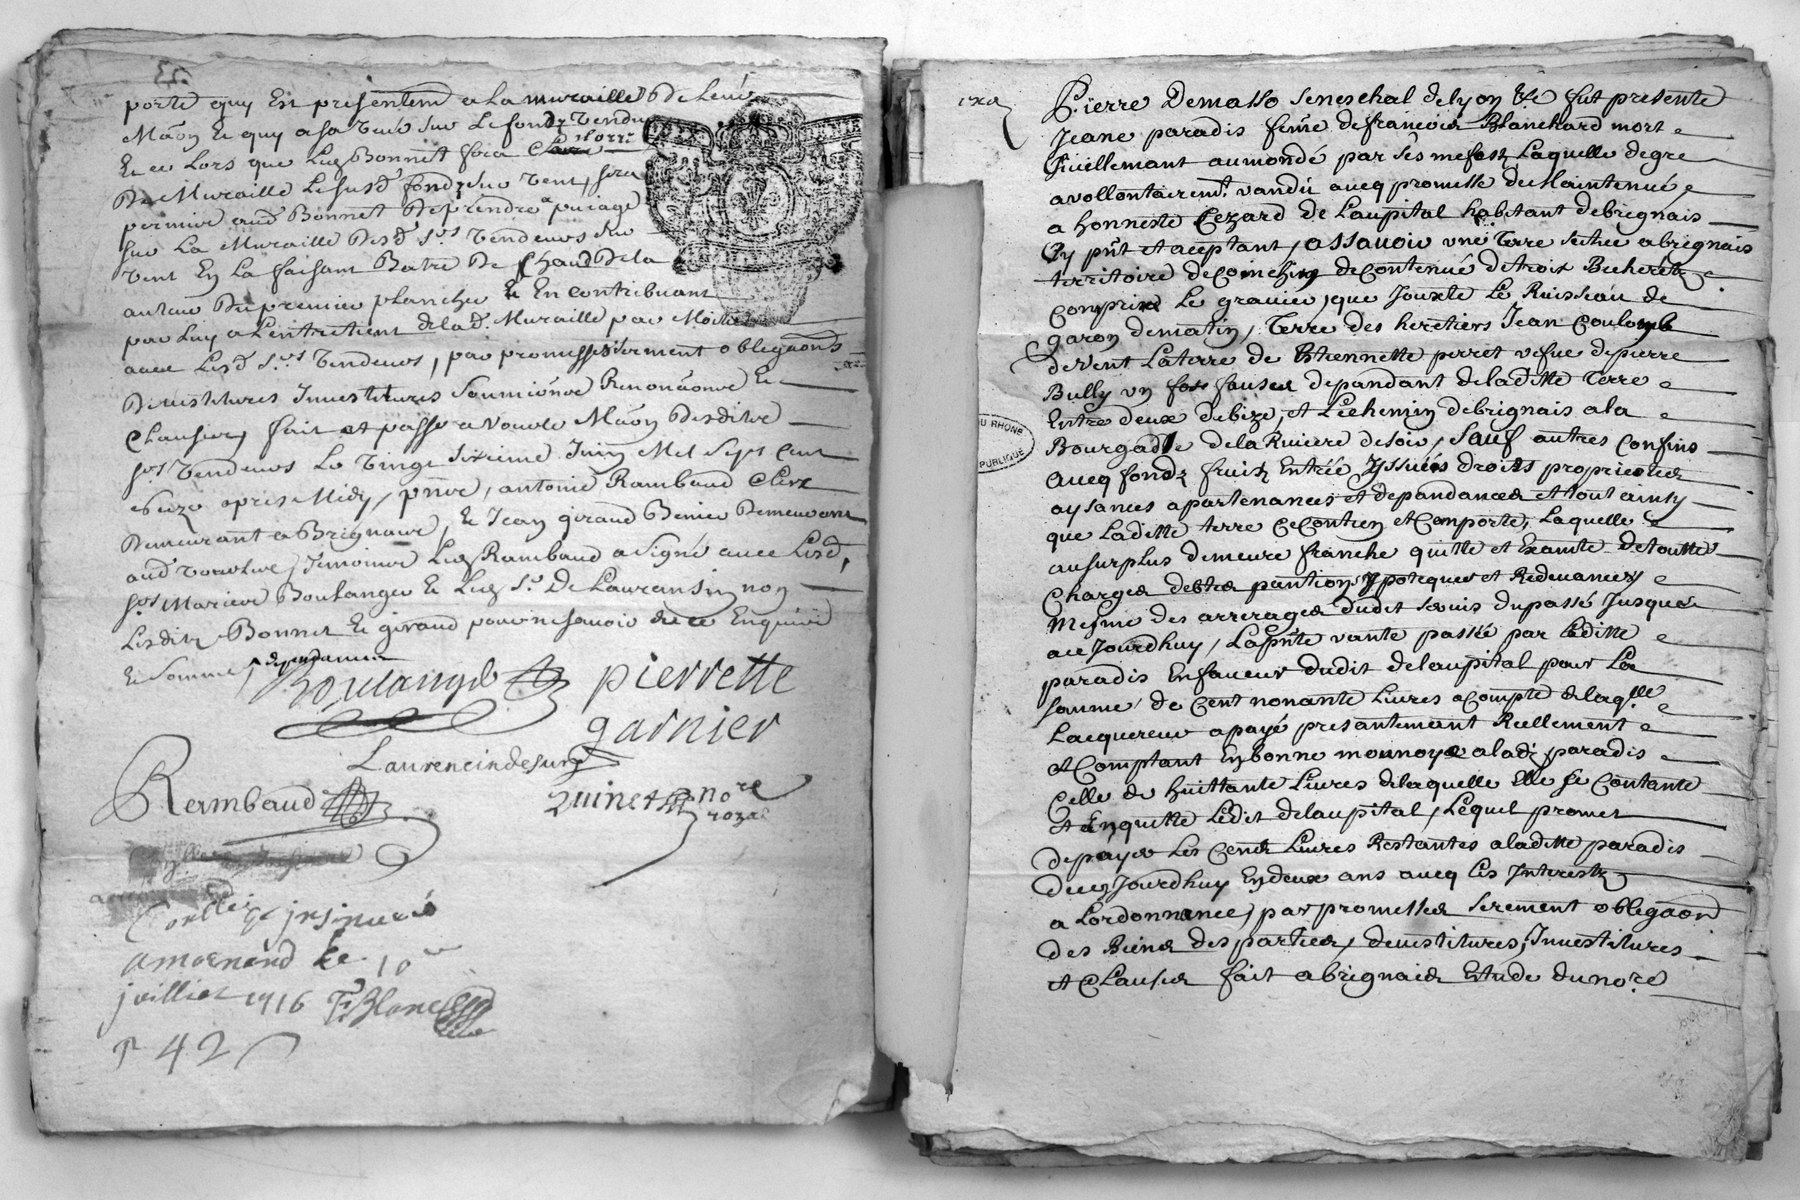 porte quy En presentem a La muraille De Leur
Maōn Et quy a sa Veüe sur Le fond Vendu
Et ce Lors que Led Bonnet fera Clorre
De Muraille Le susd fond sus vent, sera
permier aud Bonnet De prendre apuiage
sur La Muraille Desd Srs Vendeurs du
Vent En La faisant Batre De Chaud De la
auteur Du premier plancher Et En contribuant
par Luy a L'entretient de lad. Muraille par Moitié
avec Lesd Srs Vendeurs, par promesses serment obligaōns
Devestitures Investitures Soumiōns Renonciaōns Et
Clauses, fait et passé a Maōn Desdits
Srs Vendeurs Le Vingt sixieme Juin Mil Sept Cent
seize apres Midy, pnts, antoine Rambaud Clerc
Demeurant a Brignais, Et Jean giraud Demeurant
aud temoins Led Rambaud a signé avec Lesd,
Srs Maries Boulanger Et Led Sr De Laurensin non
Lesdits Bonnet Et giraud pour ne scavoir de ce Enquis
Et Sommes,
Boulanger pierrette
garnier
Laurencin
Rambaud Quinet nore
roya
Conllé & jnsinué
a mornand le 10e
juilliet 1716 Blanc
r 42 s
Pierre Demasso seneschal de lyon &c fut presente
Jeane paradis feme de francois Blanchard mort
Civillemant au monde par ses mefaz Laquelle de gre
a vollontairemt. vandü avecq promesse de Maintenüe
a honneste Cezard de Laupital habitant de brignais
Cy pnt et aceptant, assavoir une Terre scitüe a brignais
territoire de coinchin de contenüe de trois Bicherétz
compris Le gravier, que Jouxte Le Ruisseau de
garon de matin, Terre des heretiers Jean Coulomb
de vent La terre de Estiennette perret vefve de pierre
Bully un fossé depandant de laditte Terre
Entre deux de bize, et Le chemin de brignais a la
Bourgade de la Riviere de soir, sauf autres Confins
avecq fondz fruitz Entrée yssües droits proprietes
aysances apartenances et depandances et tout ainsy
que Laditte terre ce Contien et Comporte, Laquelle
au surplus demeure franche quitte et Examte de toutte
Charges debtes pantions ypoteques et Redevances
Mesme des arrerages dudit servis du passé Jusques
a ce Jourdhuy, La pnte vante passée par laditte
paradis En faveur dudit de laupital pour La
somme de Cent nonante Livres a Compte de laqlle
Lacquereur a payé presantemant Reellement
et Comptant En bonne monnoye a lad. paradis
Celle de huittante Livres de laquelle Elle se Contante
et En quitte Ledit de laupital, Lequel promet
de payer Les Cent Livres Restantes a laditte paradis
dece Jourdhuy En deux ans avecq Les Interestz
a Lordonnance, par promesses serement obligaōn
des Biens des parties, devestitures, Investitures
et Clauses fait a brignais Estude du nore
U RHONE
PUBLIQUE